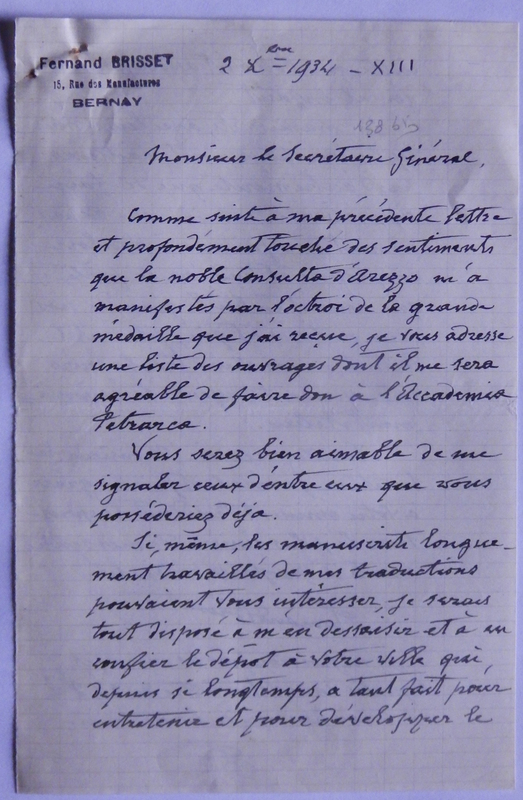 Fernand BRISSET
15, Rue des Manufactures
BERNAY
2 Xbre 1934 - XIII
138 bis
Monsieur le Secrétaire Général,
Comme suite à ma précédente lettre
et profondément touché des sentiments
que la noble Consulta d'Arezzo m'a
manifestés par l'octroi de la grande
médaille que j'ai reçue, je vous adresse
une liste des ouvrages dont il me sera
agréable de faire don à l'Accademia
Petrarca.
Vous serez bien aimable de me
signaler ceux d'entre eux que vous
posséderiez déja.
Si, même, les manuscrits longue-
ment travaillés de mes traductions
pouvaient vous intéresser, je serais
tout disposé à m'en dessaisir et à en
confier le dépot à votre ville qui,
depuis si longtemps, a tant fait pour
entretenir et pour développer le